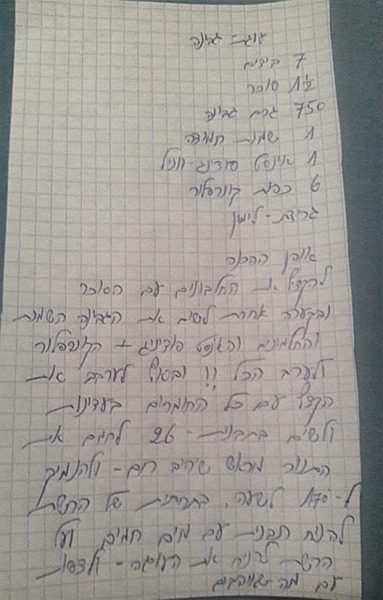 עוגת גבינה
7 ביצים
1½ סוכר
750 גרם גבינה
1 שמנת חמוצה
1 אינסט פודינג-וניל
6 כפות קורנפלור
גרידת-לימון
אופן ההכנה
להקציף את החלבונים עם הסוכר
ובקערה אחרת לשים את הגבינה השמנת
והחלמונים והאנסט פודינג + הקורנפלור
ולערבב הכל !! ובסוף לערבב את
הקצף עם כל החומרים בעדינות
ולשים בתבנית-26 לחמם את
התנור מראש שיהיה חם-ולהנמיך
ל-170 לשעה. בתחתית של הרשת
להניח תבנית עם מים חמים ועל
הרשת להניח את העוגה-ולצפות
עם מה שאוהבים